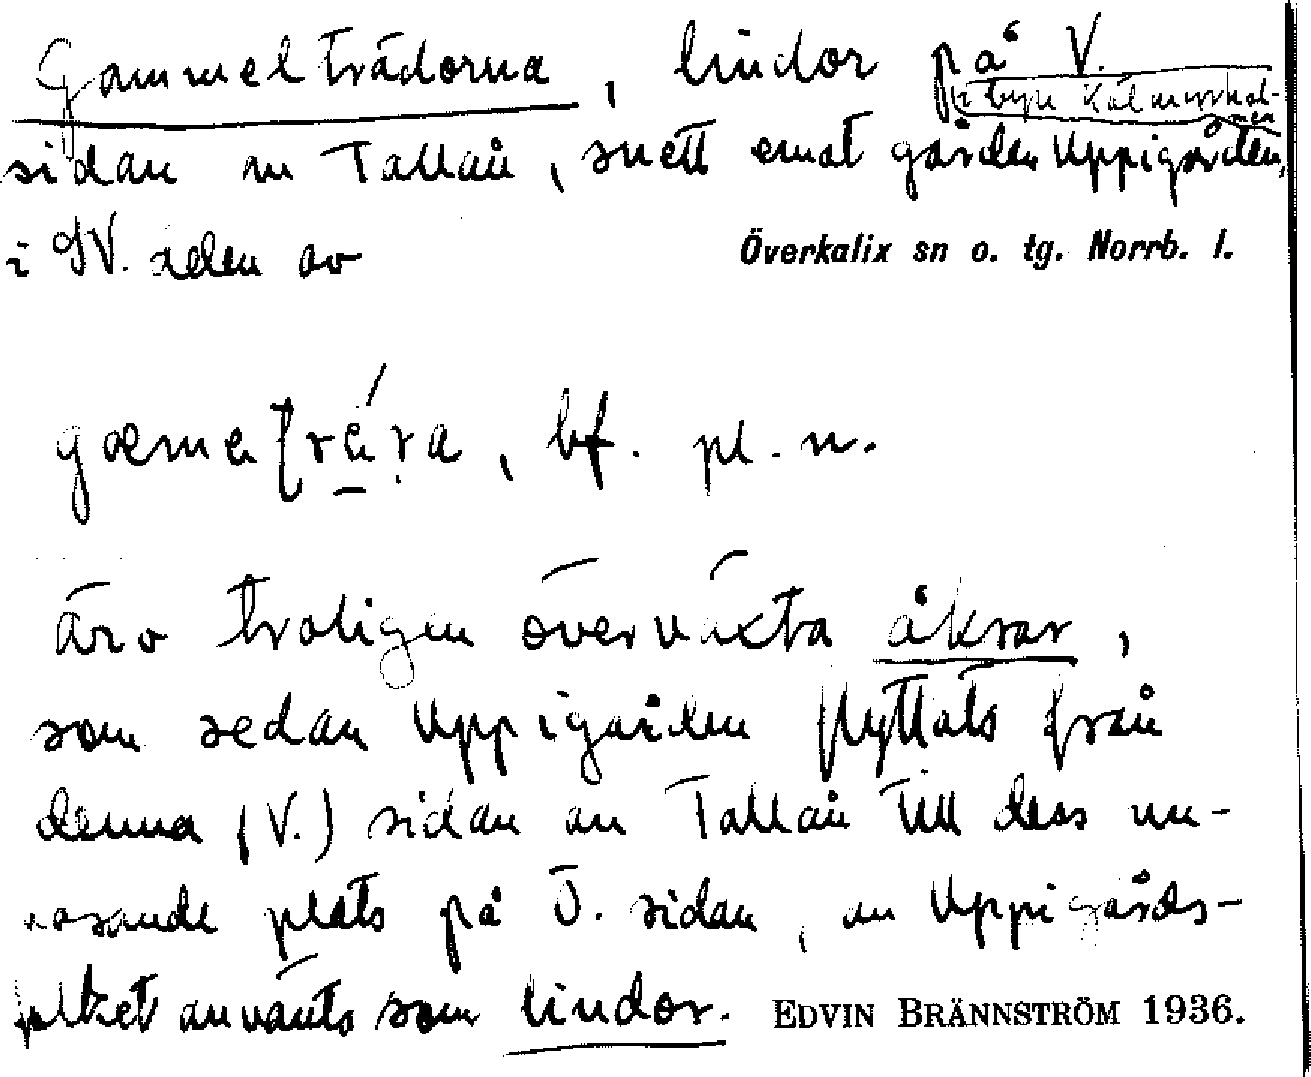 Gammelträdorna, lindor på V.
i byn Kälmyrhol-
men
sidan av Tallån, snett emot gården Uppigården,
i SV. delen av Överkalix sn o. tg. Norrb. l.
bf. pl. n.
äro troligen överväxta åkrar,
som sedan Uppigården flyttats från
denna (V.) sidan av Tallån till dess nu-
varande plats på Ö. sidan, av Uppigårds-
folket använts som lindor. EDVIN BRÄNNSTRÖM 1936.